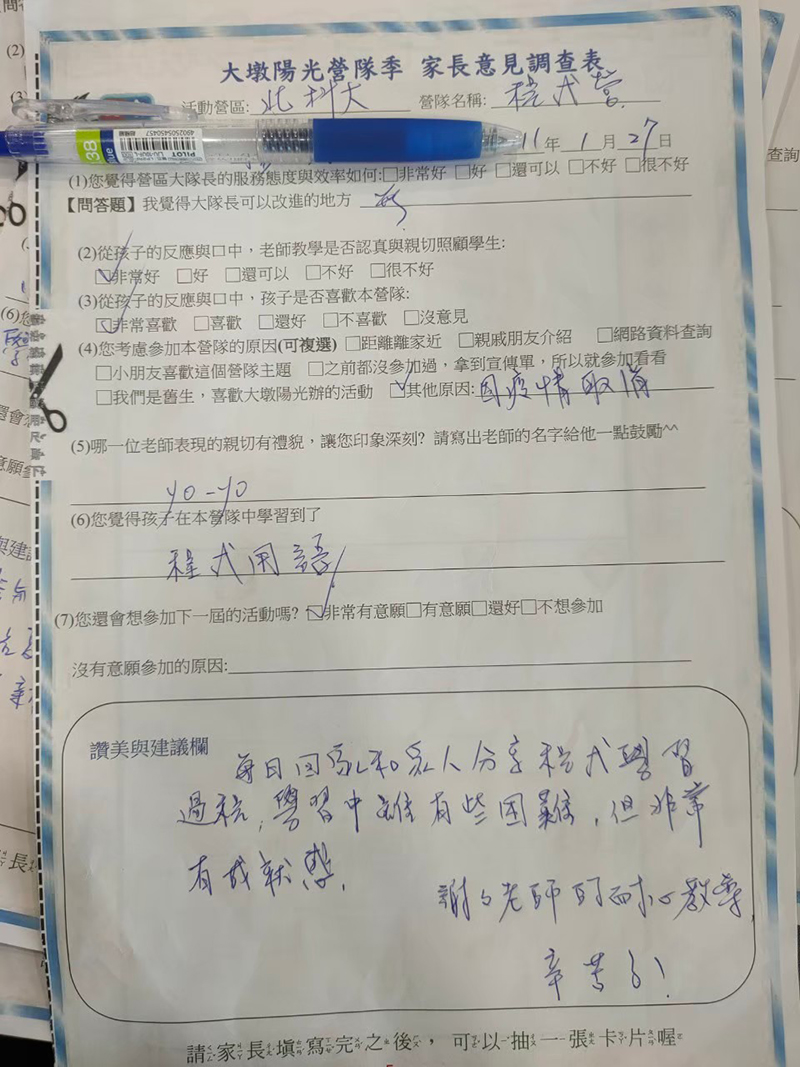 大墩陽光營隊季 家長意見調查表
活動營區: 北科大 營隊名稱: 程式營
11年1月27日
(1)您覺得營區大隊長的服務態度與效率如何:□非常好 □好 □還可以 □不好 □很不好
【問答題】我覺得大隊長可以改進的地方
(2)從孩子的反應與口中，老師教學是否認真與親切照顧學生:
☑非常好 □好 □還可以 □不好 □很不好
(3)從孩子的反應與口中，孩子是否喜歡本營隊:
☑非常喜歡 □喜歡 □還好 □不喜歡 □沒意見
(4)您考慮參加本營隊的原因(可複選) □距離離家近 □親戚朋友介紹 □網路資料查詢
□小朋友喜歡這個營隊主題 □之前都沒參加過，拿到宣傳單，所以就參加看看
□我們是舊生，喜歡大墩陽光辦的活動 ☑其他原因:因疫情取消
(5)哪一位老師表現的親切有禮貌，讓您印象深刻? 請寫出老師的名字給他一點鼓勵^^
yo-yo
(6)您覺得孩子在本營隊中學習到了
程式用語
(7)您還會想參加下一屆的活動嗎? ☑非常有意願□有意願□還好□不想參加
沒有意願參加的原因:
讚美與建議欄
每日回家和家人分享程式學習
過程，學習中雖有些困難，但非常
有成就感，
謝謝老師的耐心教導
辛苦了！
請家長填寫完之後，可以抽一張卡片喔